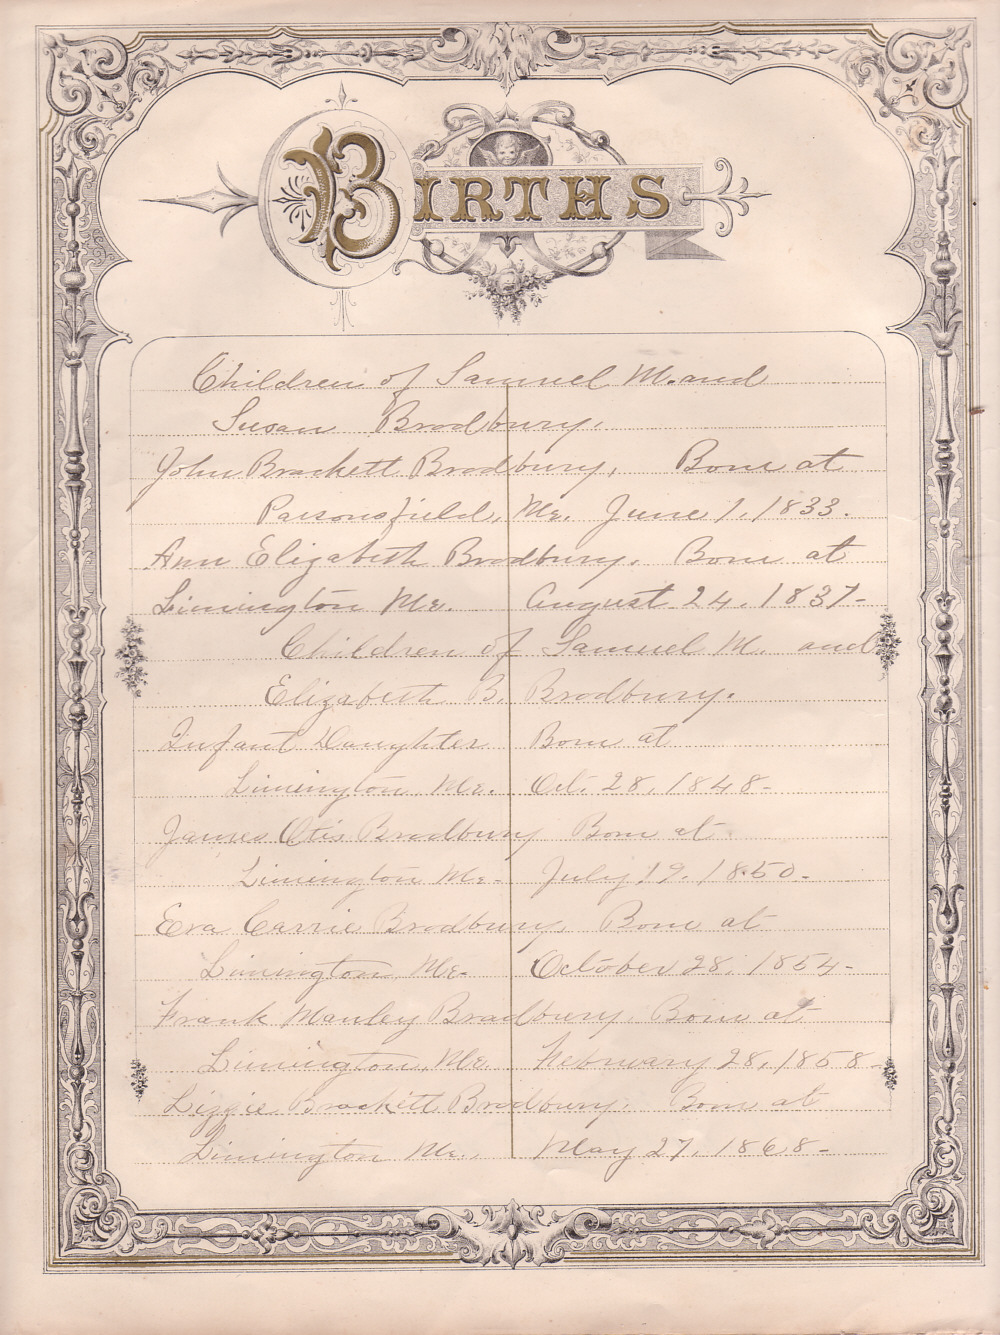 BIRTHS
Children of Samuel M. and
Susan Bradbury.
John Brackett Bradbury. Born at
Parsonsfield, Me. June 1, 1833.
Ann Elizabeth Bradbury. Born at
Limington Me. August 24, 1837-
Children of Samuel M. and
Elizabeth B. Bradbury.
Infant Daughter Born at
Limington, Me. Oct. 28, 1848-
James Otis Bradbury Born at
Limington Me- July 19, 1850-
Eva Carrie Bradbury, Born at
Limington, Me- October 28, 1854-
Frank Manley Bradbury, Born at
Limington, Me. February 28, 1858-
Lizzie Brackett Bradbury, Born at
Limington Me., May 27, 1868-